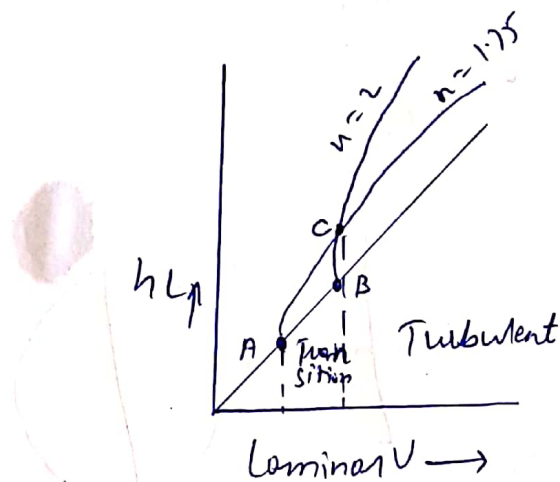 n=2
n=1.75
C
B
hL
A
Tran
sition
Turbulent
Laminar V →